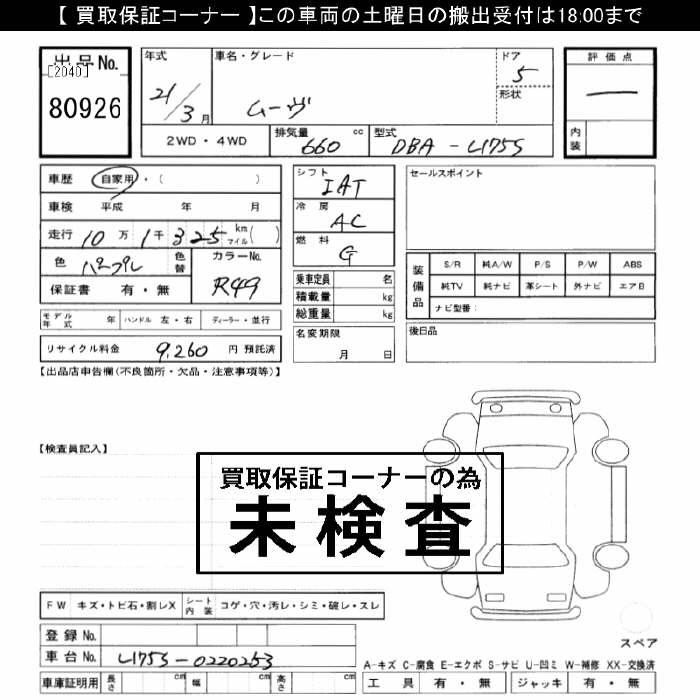 【 買取保証コーナー 】この車両の土曜日の搬出受付は18:00まで
出品No.
[2040]
80926
年式
21/3月
車名・グレード
ムーヴ
ドア
5
形状
評価点
―
内装
2WD・4WD
排気量 660 cc
型式 DBA-L175S
車歴 自家用・( )
車検 平成 年 月
走行 10万1千325km マイル( )
色 パープル 色替
カラーNo. R49
保証書 有・無
シフト
IAT
冷房
AC
燃料
G
乗車定員 名
積載量 kg
総重量 kg
名変期限
月 日
セールスポイント
装備品
S/R 純A/W P/S P/W ABS
純TV 純ナビ 革シート 外ナビ エアB
ナビ型番:
後日品
モデル年式 年 ハンドル 左・右 ディーラー・並行
リサイクル料金 9,260 円 預託済
【出品店申告欄(不良箇所・欠品・注意事項等)】
【検査員記入】
買取保証コーナーの為
未検査
FW キズ・トビ石・割レX シート内装 コゲ・穴・汚レ・シミ・破レ・スレ
登録 No.
車台 No. L175S-0220253
車庫証明用 長さ cm 幅 cm 高さ cm
スペア
A-キズ C-腐食 E-エクボ S-サビ U-凹ミ W-補修 XX-交換済
工具 有・無 ジャッキ 有・無